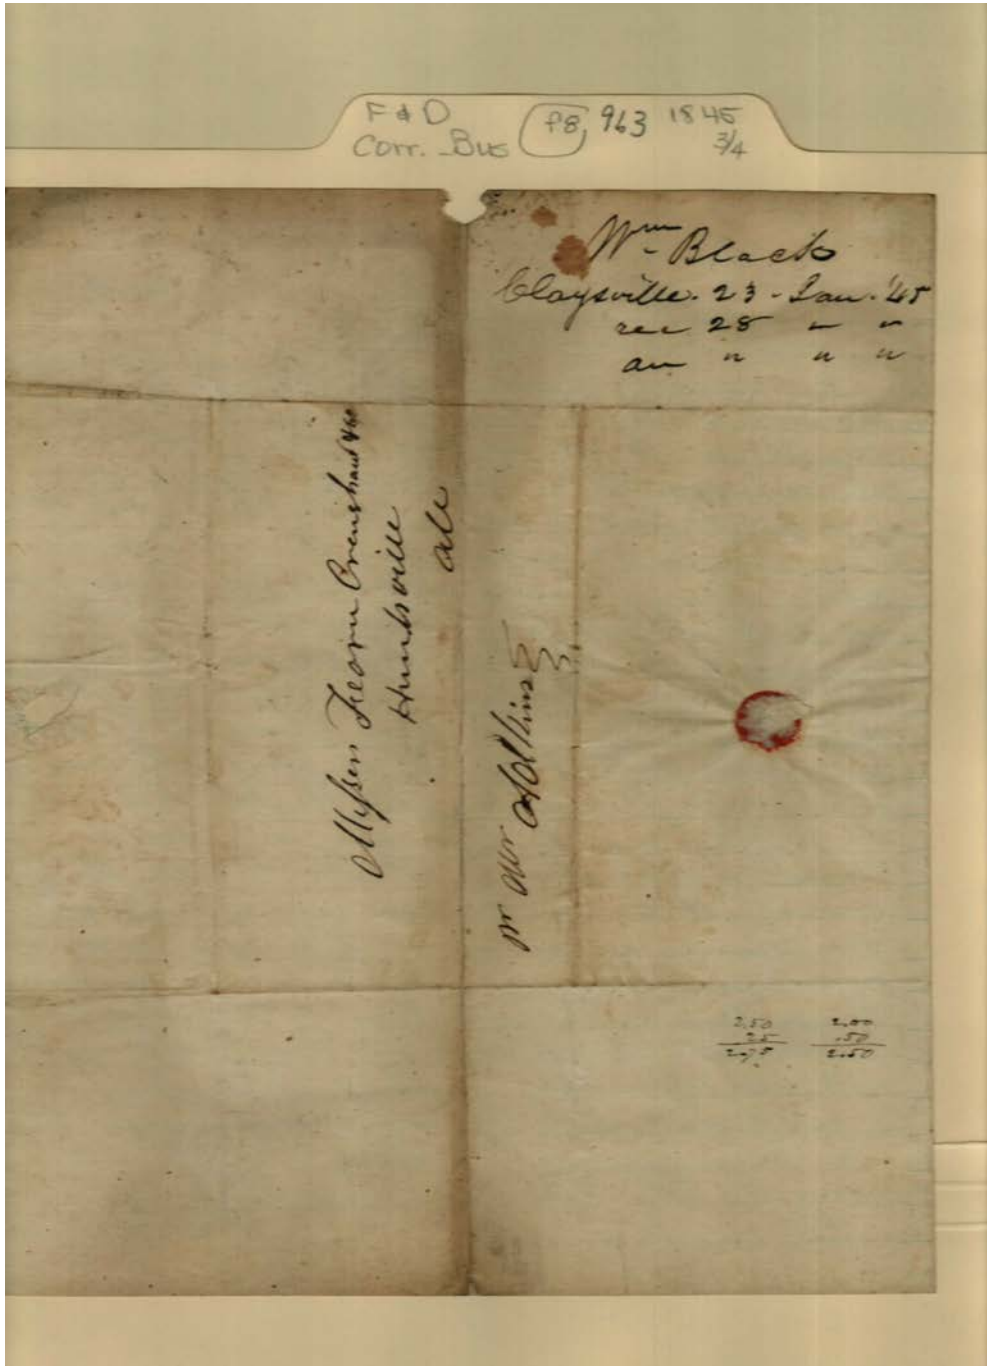 F & D
Corr. Bus
P8, 963 1845
3/4
Wm Black
Claysville. 23 - Jan. '45
rec 28 " "
an " " "
Messrs Fearn Crenshaw & Co
Huntsville
Ala
pr Mr
2.50
25
2.75
2.00
.50
2.50